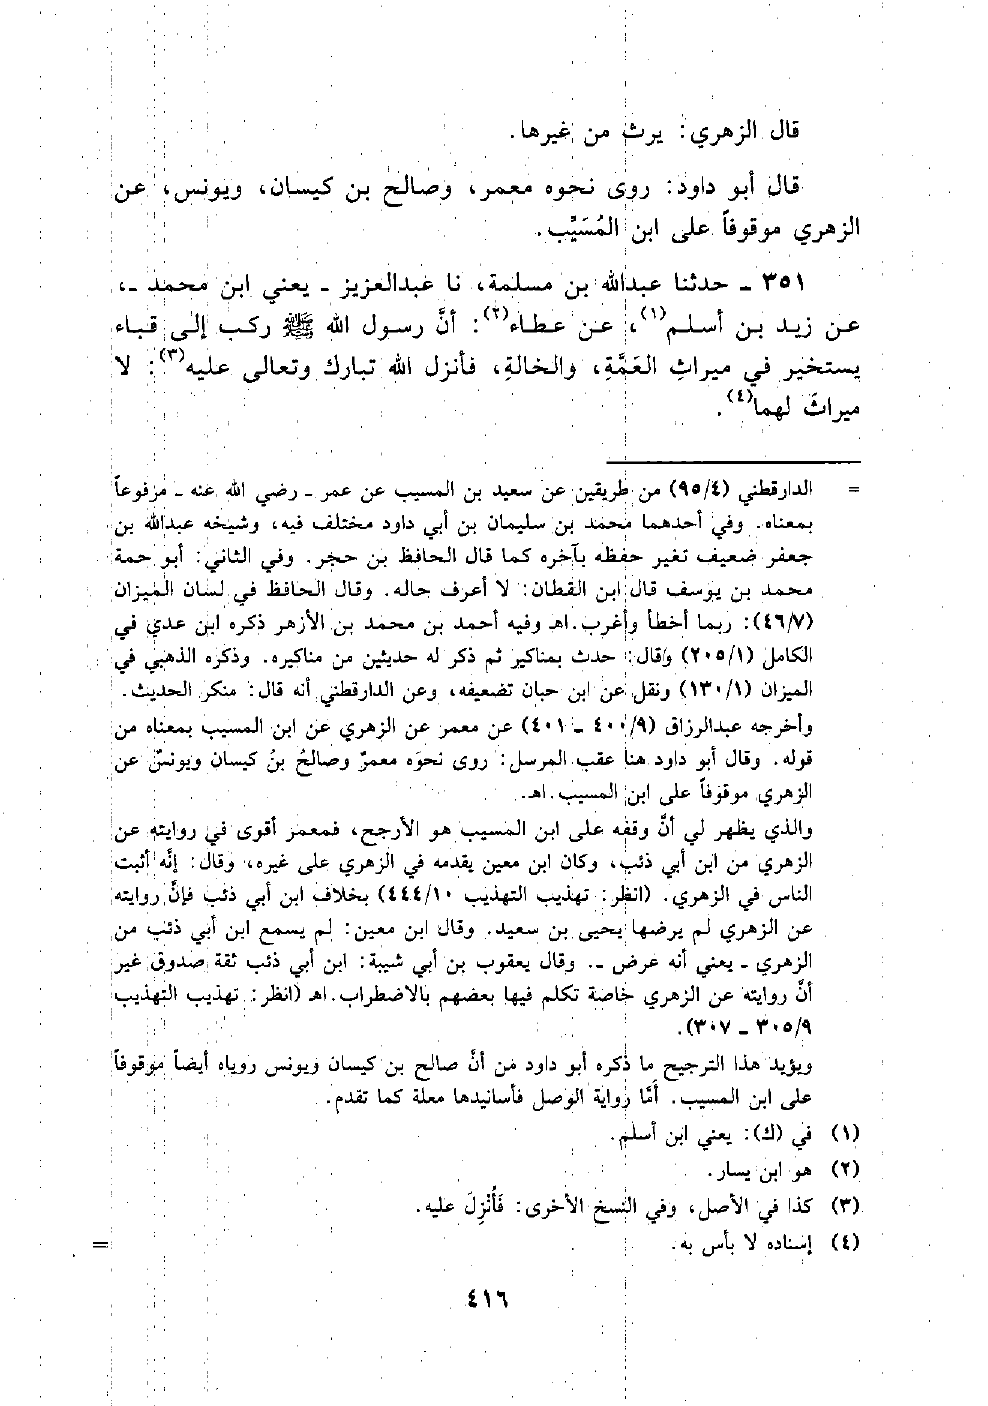 قال الزهري: يرث من غيرها.
قال أبو داود: روى نحوه معمر، وصالح بن كيسان، ويونس، عن
الزهري موقوفاً على ابن المُسَيَّب.
٣٥١ ـ حدثنا عبدالله بن مسلمة، نا عبدالعزيز ـ يعني ابن محمد ـ،
عن زيد بن أسلم(١)، عن عطاء(٢): أنَّ رسول الله ﷺ ركب إلى قباء
يستخير في ميراثِ العَمَّةِ، والخالةِ، فأنزل الله تبارك وتعالى عليه(٣): لا
ميراثَ لهما(٤).
= الدارقطني (٩٥/٤) من طريقين عن سعيد بن المسيب عن عمر ـ رضي الله عنه ـ مرفوعاً
بمعناه. وفي أحدهما محمد بن سليمان بن أبي داود مختلف فيه، وشيخه عبدالله بن
جعفر ضعيف تغير حفظه بآخره كما قال الحافظ بن حجر. وفي الثاني: أبو حمة
محمد بن يوسف قال ابن القطان: لا أعرف حاله. وقال الحافظ في لسان الميزان
(٤٦/٧): ربما أخطأ وأغرب.اهـ وفيه أحمد بن محمد بن الأزهر ذكره ابن عدي في
الكامل (٢٠٥/١) وقال: حدث بمناكير ثم ذكر له حديثين من مناكيره. وذكره الذهبي في
الميزان (١٣٠/١) ونقل عن ابن حبان تضعيفه، وعن الدارقطني أنه قال: منكر الحديث.
وأخرجه عبدالرزاق (٤٠٠/٩ ـ ٤٠١) عن معمر عن الزهري عن ابن المسيب بمعناه من
قوله. وقال أبو داود هنا عقب المرسل: روى نحوَه معمرٌ وصالحُ بنُ كيسان ويونسٌ عن
الزهري موقوفاً على ابن المسيب.اهـ.
والذي يظهر لي أنَّ وقفه على ابن المسيب هو الأرجح، فمعمر أقوى في روايته عن
الزهري من ابن أبي ذئب، وكان ابن معين يقدمه في الزهري على غيره، وقال: إنَّه أثبت
الناس في الزهري. (انظر: تهذيب التهذيب ٤٤٤/١٠) بخلاف ابن أبي ذئب فإنَّ روايته
عن الزهري لم يرضها يحيى بن سعيد. وقال ابن معين: لم يسمع ابن أبي ذئب من
الزهري ـ يعني أنه عرض ـ. وقال يعقوب بن أبي شيبة: ابن أبي ذئب ثقة صدوق غير
أنَّ روايته عن الزهري خاصة تكلم فيها بعضهم بالاضطراب.اهـ (انظر: تهذيب التهذيب
٣٠٥/٩ ـ ٣٠٧).
ويؤيد هذا الترجيح ما ذكره أبو داود من أنَّ صالح بن كيسان ويونس روياه أيضاً موقوفاً
على ابن المسيب. أمَّا رواية الوصل فأسانيدها معلة كما تقدم.
(١) في (ك): يعني ابن أسلم.
(٢) هو ابن يسار.
(٣) كذا في الأصل، وفي النسخ الأخرى: فَأُنْزِلَ عليه.
(٤) إسناده لا بأس به. =
٤١٦